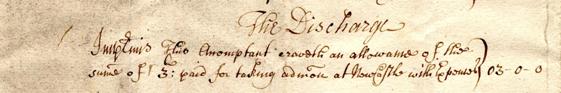 The Discharge
Imprimis This Accomptant craveth an allowance of the
sume of 3: paid for taking admon at Newcastle with Expenses 03-0-0